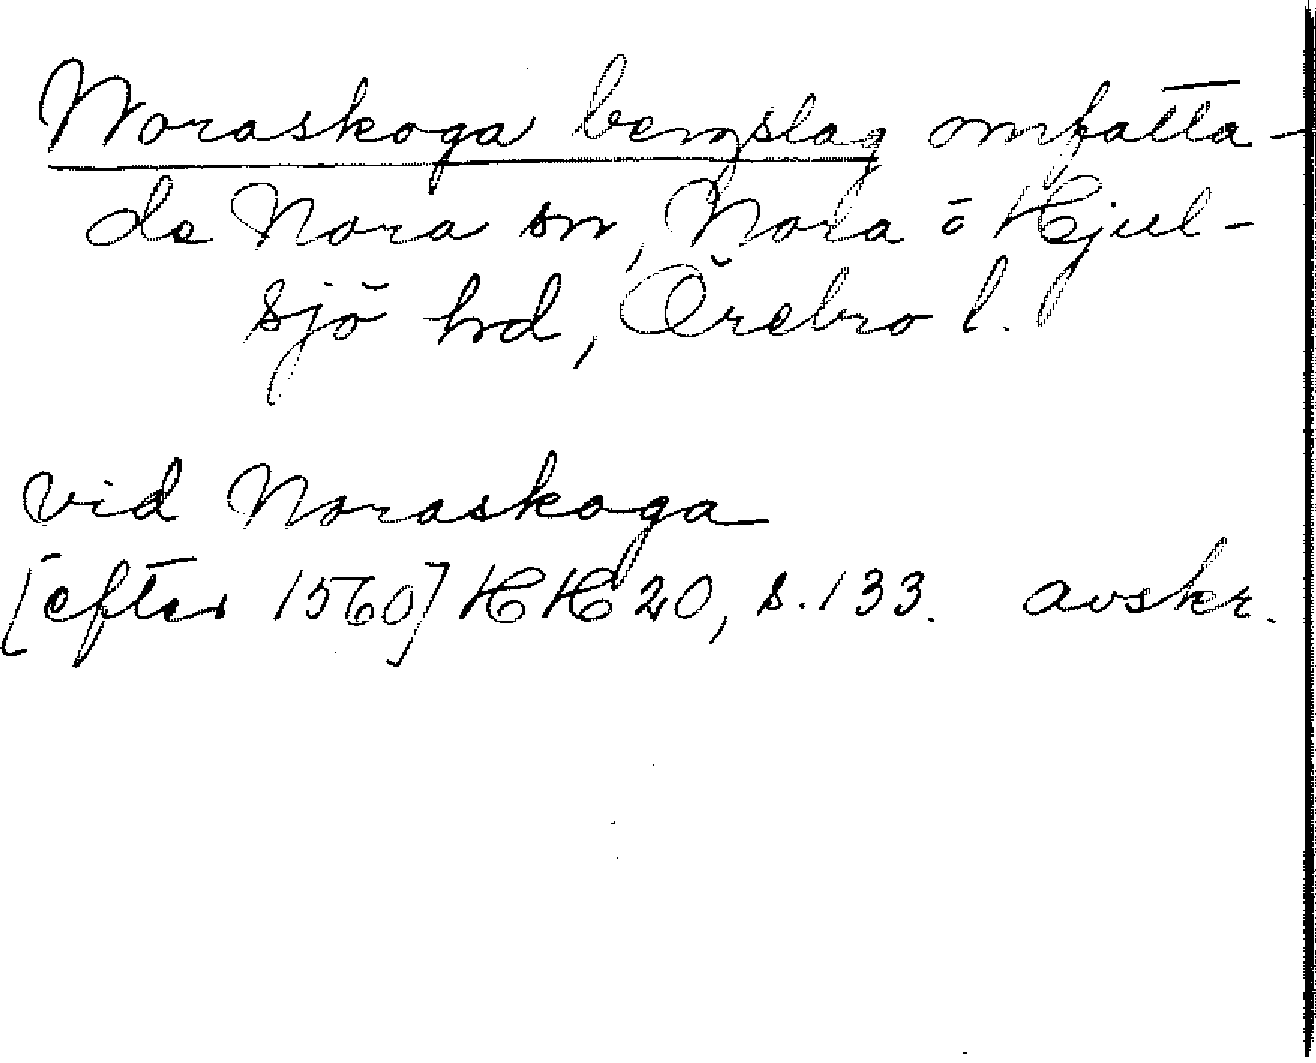 Noraskoga bergslag omfatta-
de Nora sn, Nora o Hjul-
sjö hd, Örebro l.
vid Noraskoga
[efter 1560] HH 20, s. 133. avskr.